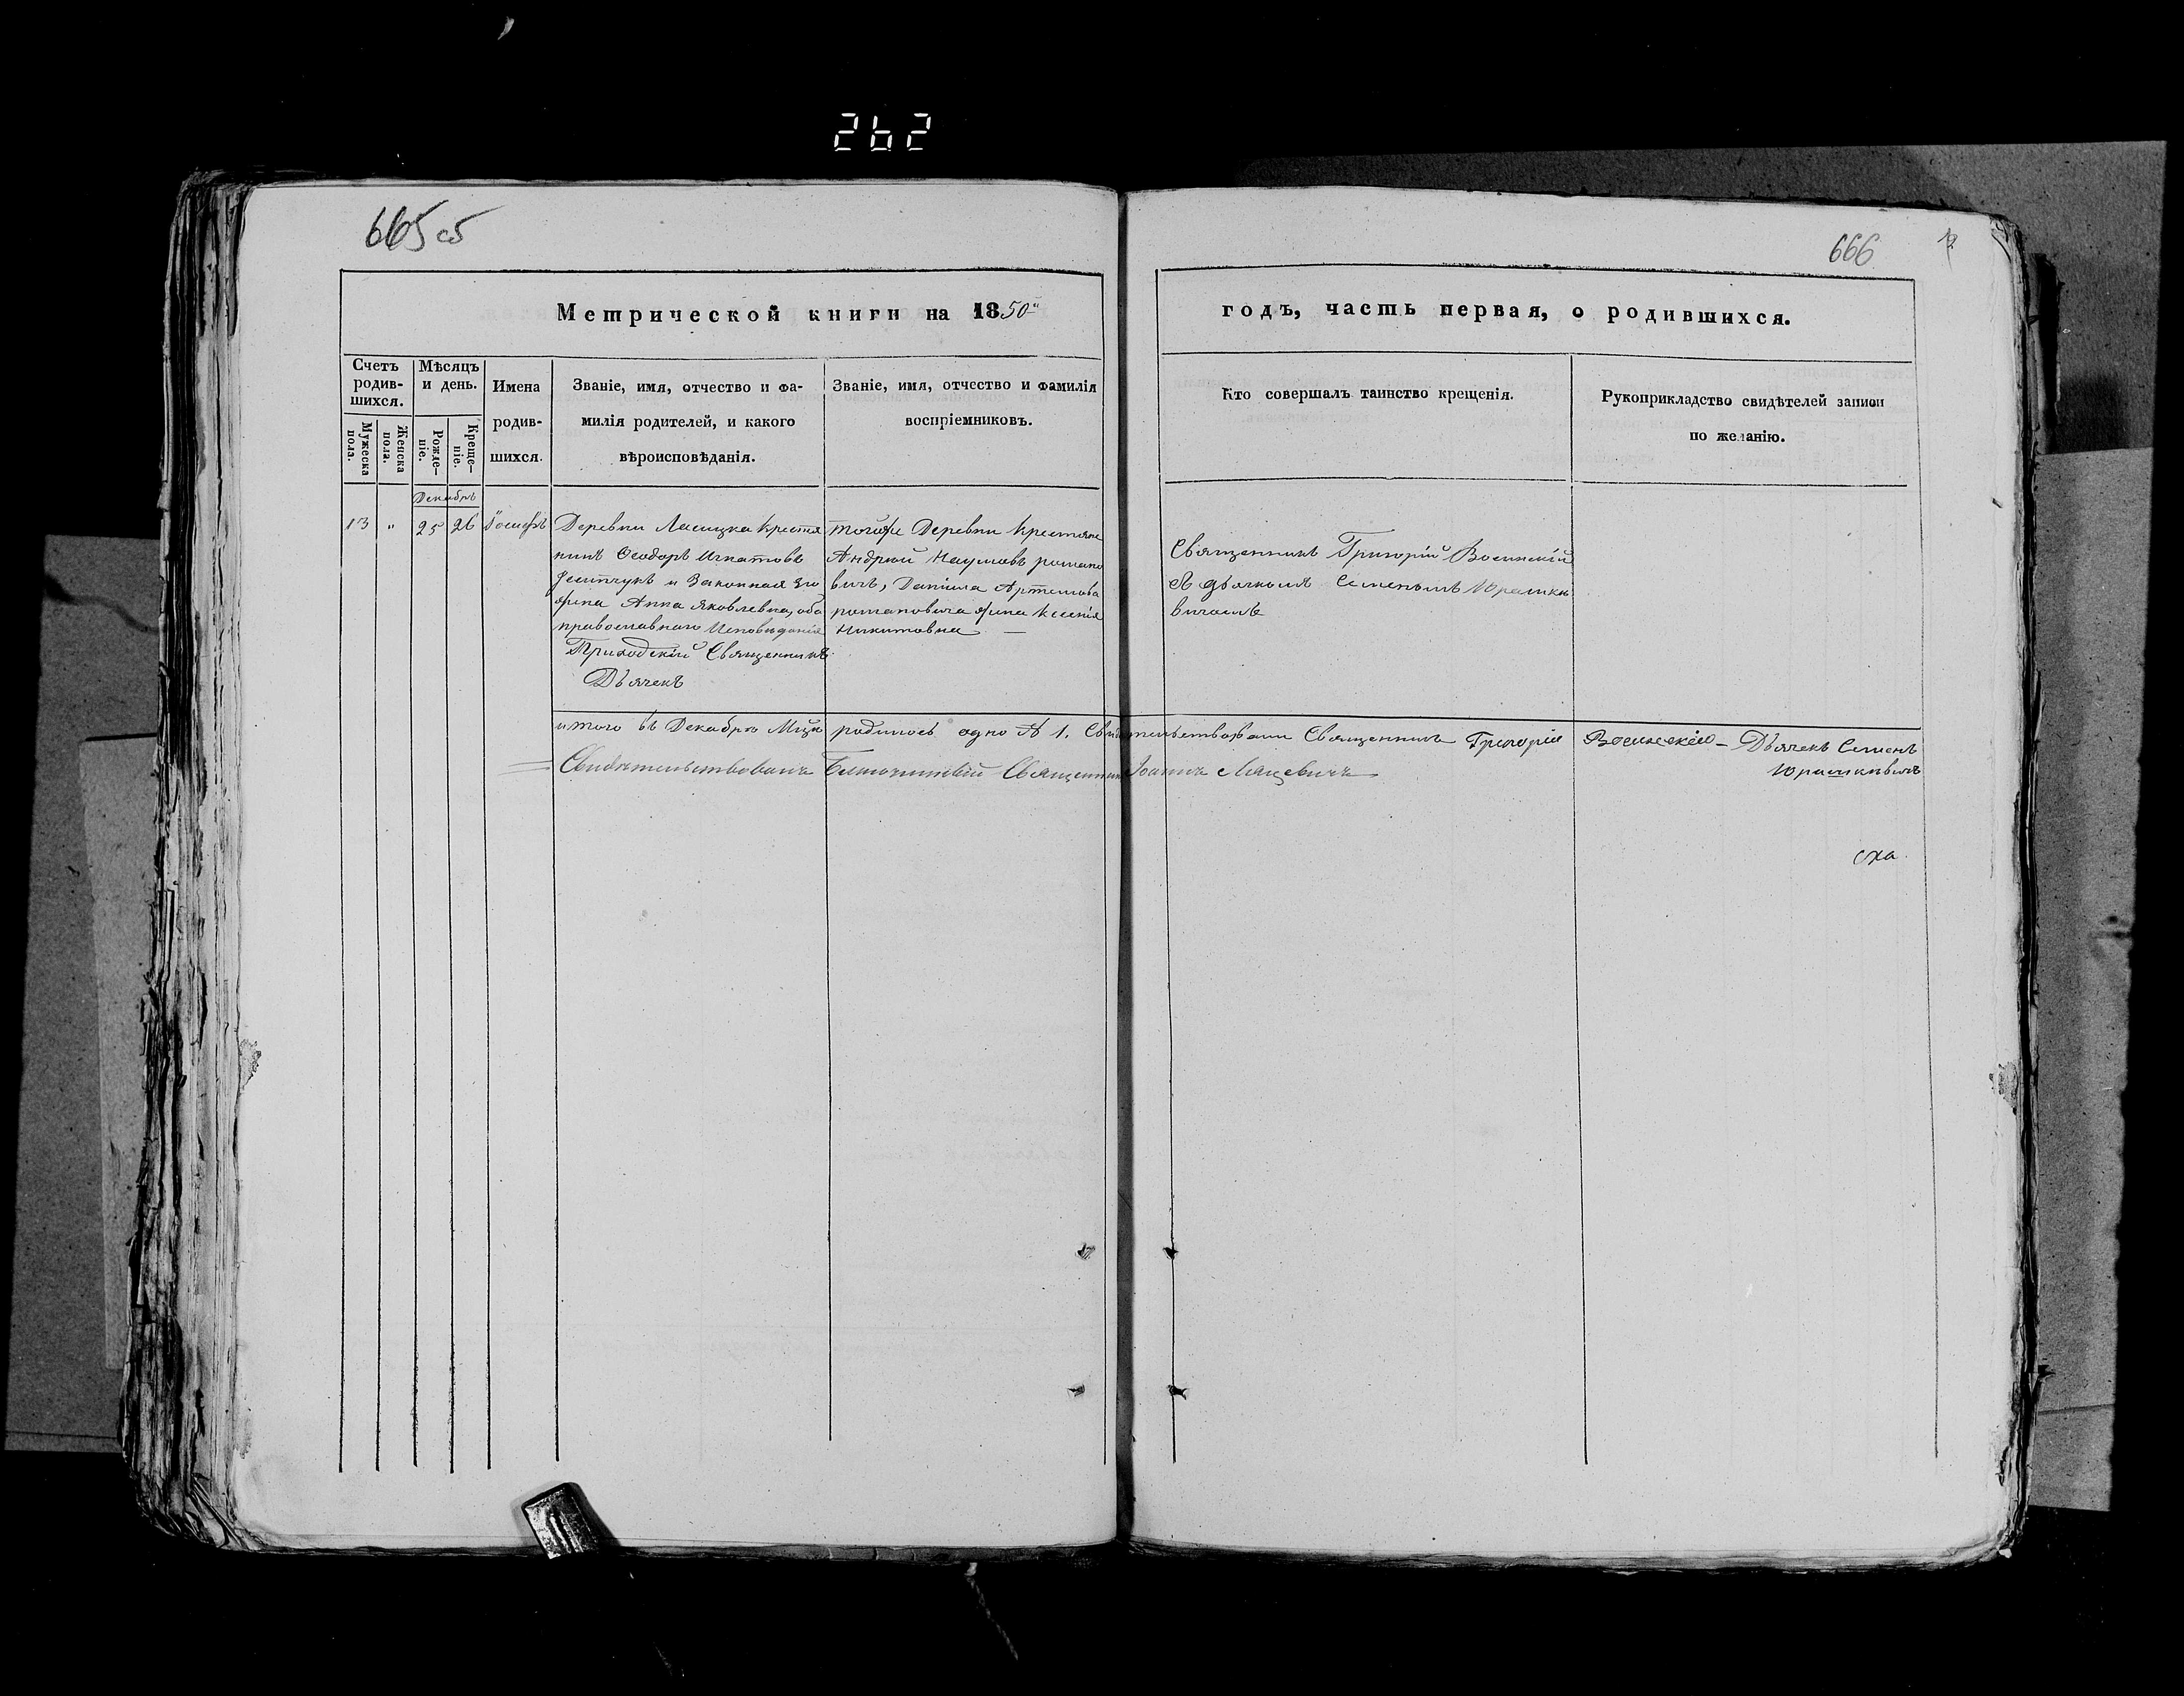 262
665 об
666
Метрической книги на 1850й
годъ, часть первая, о родившихся.
Счетъ родив-шихся.
Мужеска пола.
Женска пола.
Мѣсяцъ и день.
Рожде-ніе.
Креще-ніе.
Имена
родив-
шихся.
Званіе, имя, отчество и фа-
милія родителей, и какого
вѣроисповѣданія.
Званіе, имя, отчество и фамилія
воспріемниковъ.
Кто совершалъ таинство крещенія.
Рукоприкладство свидѣтелей записи
по желанію.
Декабрь
13 " 25 26 Іосифъ
Деревни Ласицка крестья
нинъ Ѳеодоръ Игнатовъ
и Законная Его
жина Анна Яковлевна, оба
православнаго Исповѣданія
Приходскій Священникъ
Дьячекъ
тойже Деревни крестьяне
Андрей Наумовъ романо
вичъ, Даніила Артемова
романовича жина Ксенія
Никитовна —
Священникъ Григорій
Съ дьячкомъ Семеномъ Юрашке
вичомъ
итого въ Декабрѣ Мцѣ родилось одно № 1. Свидѣтельствовали Священникъ Григорій — Дьячекъ Семенъ
Юрашкевичъ
Свидѣтельствовалъ Благочинный Священникъ Іоаннъ Лящевичъ